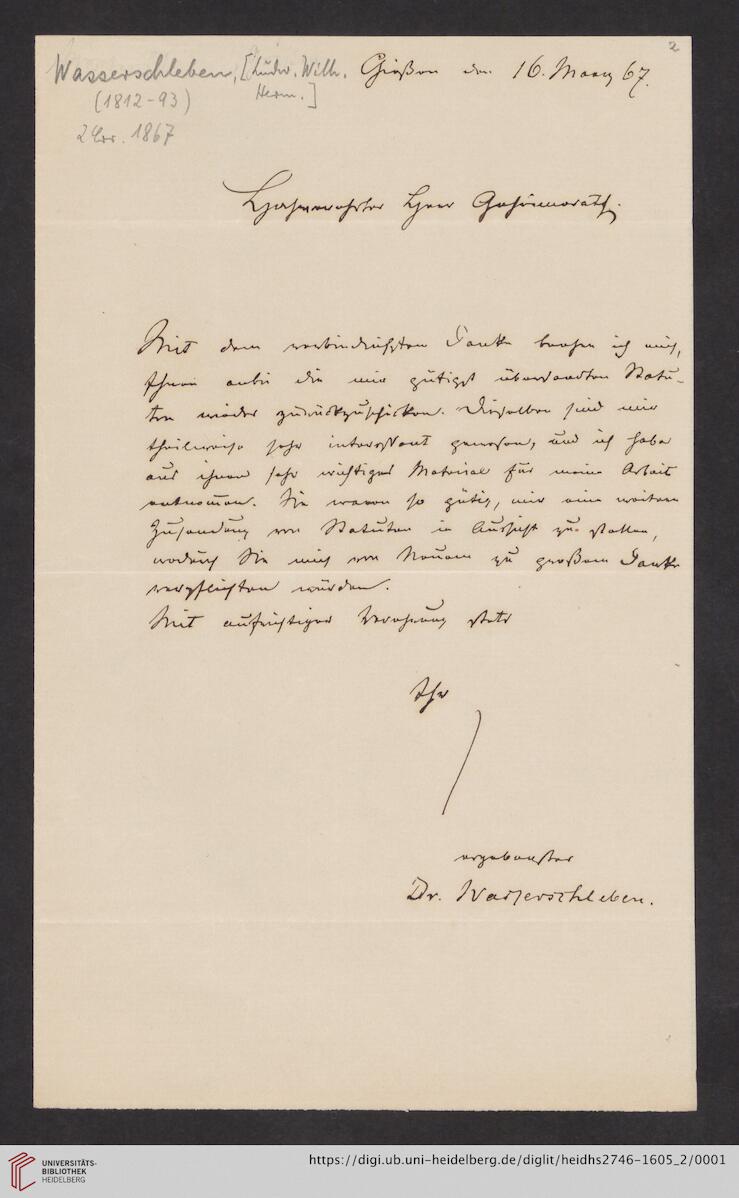 2
Wasserschleben, [Ludw. Wilh. Herm.]
(1812-93)
2 Br. 1867
Gießen den 16. Maerz 67.
Hochverehrter Herr Geheimerath,
Mit dem verbindlichsten Danke beehre ich mich,
Ihnen anbei die mir gütigst übersandten Statu-
ten wieder zurückzuschicken. Dieselben sind mir
theilweise sehr interessant gewesen, und ich habe
aus ihnen sehr wichtiges Material für meine Arbeit
entnommen. Sie waren so gütig, mir eine weitere
Zusendung von Statuten in Aussicht zu stellen,
wodurch Sie mich von Neuem zu großem Danke
verpflichten würden.
Mit aufrichtiger Verehrung stets
Ihr
ergebenster
Dr. Wasserschleben.
UNIVERSITÄTS-
BIBLIOTHEK
HEIDELBERG
https://digi.ub.uni-heidelberg.de/diglit/heidhs2746-1605_2/0001